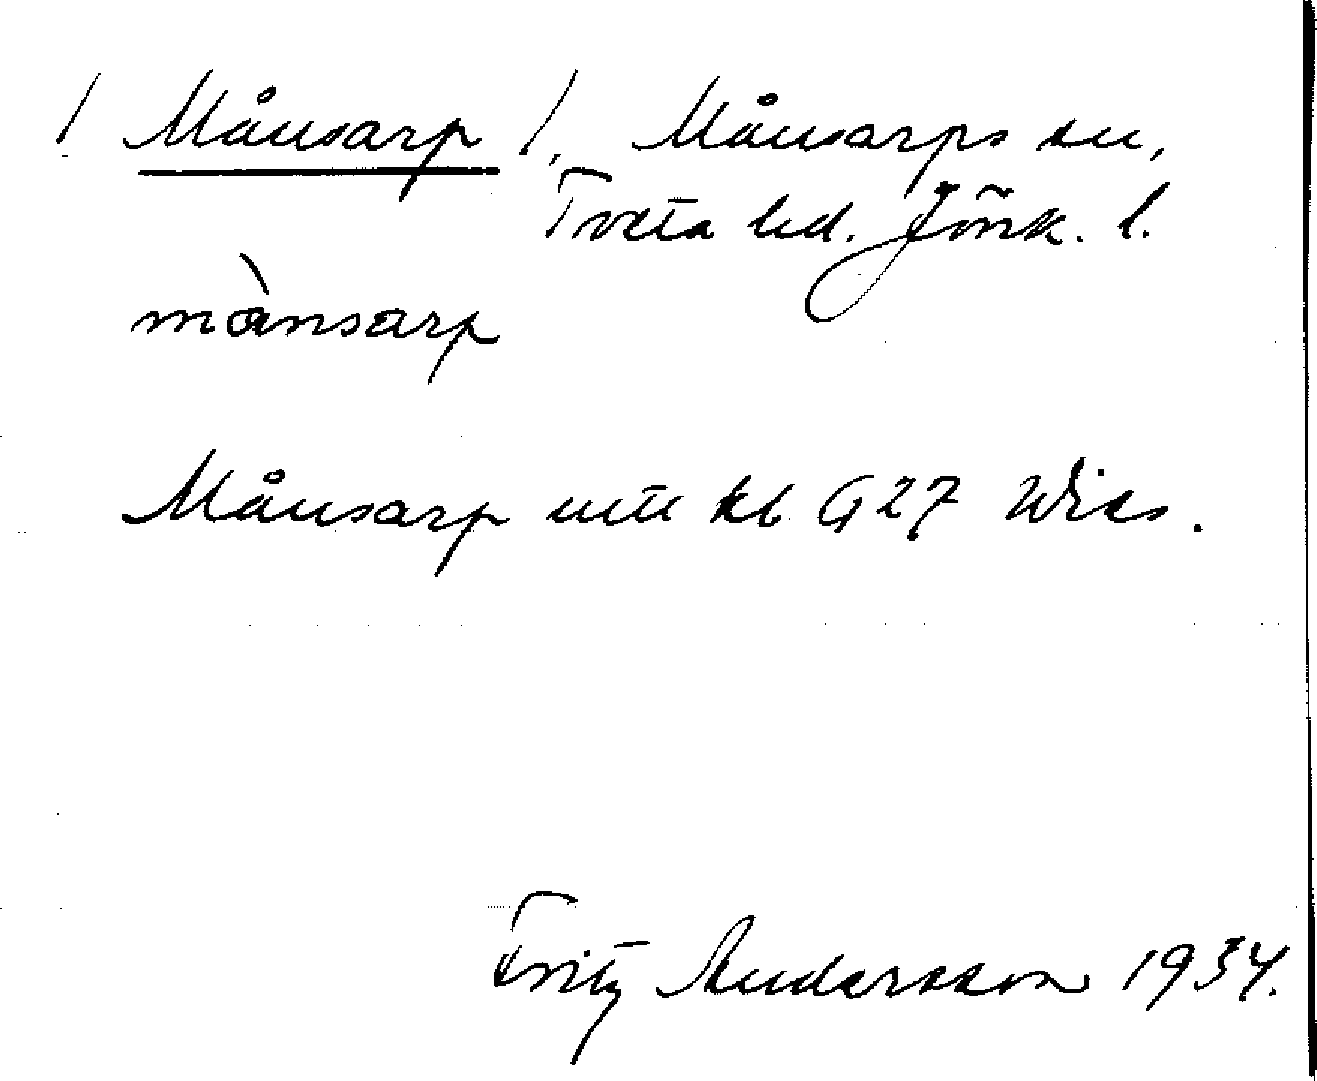 / Månsarp /, Månsarps sn,
Tveta hd. Jönk. l.
mànsarp
Månsarp kb G27 Wics.
Fritz Andersson 1934.